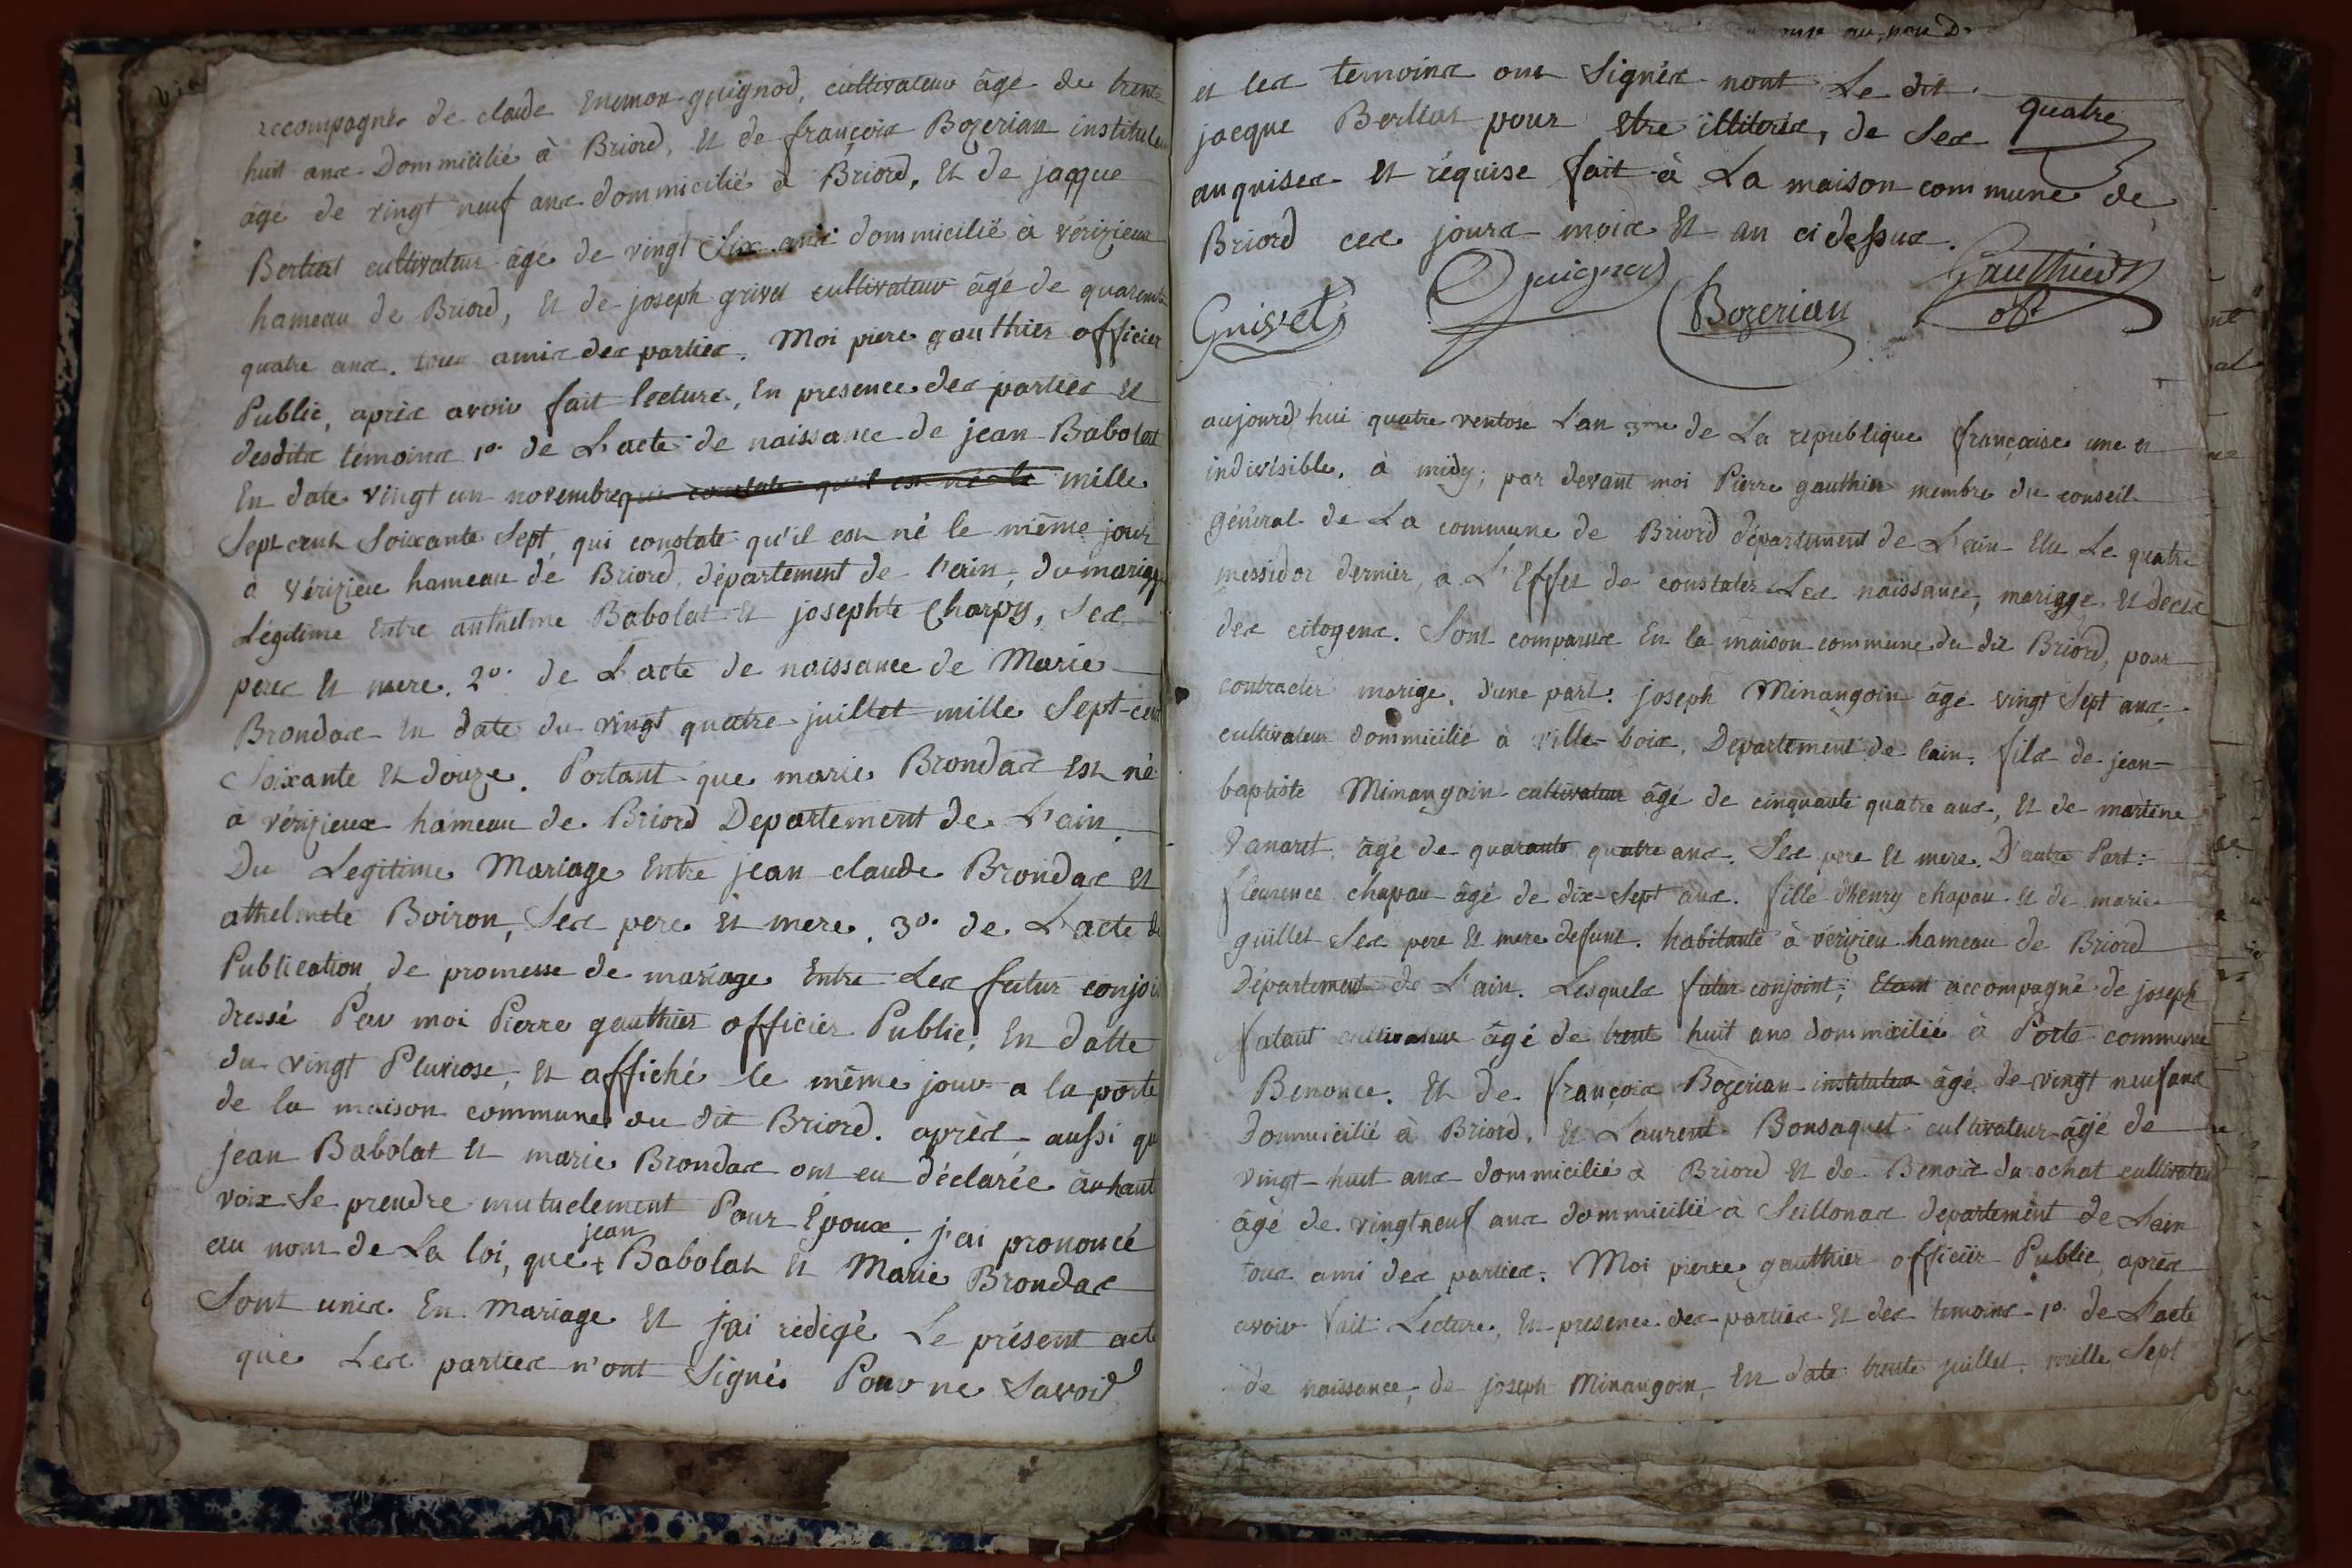 accompagnés de claude Enemon guignod, cultivateur âgé de trente
huit ans Dommicilié à Briord, Et de françois Bozerian institute
âgé de vingt neuf ans dommicilié à Briord, Et de jacque
Berliat cultivateur âgé de vingt Six ans dommicilié à vérizieux
hameau de Briord, Et de joseph grivet cultivateur âgé de quarente
quatre ans. tous amis des parties. Moi piere gauthier officier
Public, après avoir fait lecture, En presence des parties Et
desdits témoins 1º. de L'acte de naissance de jean Babolat
En date vingt un novembre qui constate qu'il est né le mille
Sept cent Soixante Sept, qui constate qu'il est né le même jour
à Vérizieu hameau de Briord, département de l'ain, du mariage
Légitime Entre anthelme Babolat Et josephte Charpy, Ses
peres Et mere. 2º. de L'acte de naissance de Marie
Brondas En date du vingt quatre juillet mille Sept-cent
Soixante Et douze. Portant que marie Brondas Est né
à vérizieux hameau de Briord Departement de L'ain.
Du Legitime Mariage Entre jean claude Brondas Et
athelmete Boiron, Ses pere Et mere. 3º. de L'acte de
Publication de promesse de mariage Entre Les futur conjoi
dressé Par moi Pierre gauthier officier Public, En datte
du vingt Pluviose, Et affiché le même jour a la porte
de la maison commune du dit Briord. après aussi qu
jean Babolat Et marie Brondas ont eu déclarée à haut
voix Se prendre mutuelement Pour Époux. j'ai prononcé
jean
au nom de La loi, que + Babolat Et Marie Brondas
Sont unis En Mariage Et j'ai rédigé Le présent acte
que Les parties n'ont Signés Pour ne Savoir
et les temoins ont Signés nont Le dit
quatre
jacque Berliat pour Etre illiterés, de Ses
anquises Et réquise fait à La maison commune de
Briord ces jours mois Et an ci dessus.
Grivet Guignod Bozerian Gauthier of
aujourd'hui quatre ventose L'an 3me de La republique françoise une et
indivisible, à midy; par devant moi Pierre gauthier membre du conseil
général de La commune de Briord département de L'ain Elu Le quatre
messidor dernier, a L'Effet de constater Les naissance, mariage Et deces
des citoyens. Sont comparus En la maison commune du dit Briord, pour
contracter marige, d'une part: joseph Minangoin âgé vingt Sept ans
cultivateur dommicilié à ville-bois, Departement de lain. fils de jean-
baptiste Minangoin cultivateur âgé de cinquante quatre ans, Et de martene
Vanaret âgé de quarante quatre ans. Ses pere Et mere. D'autre Part:
fleurence chapau âgé de dix-Sept ans. fille d'henry chapau Et de marie
guillet Ses pere Et mere defunt. habitante à vérizieu hameau de Briord
Département de L'ain. Lesquels futur conjoint; Etant accompagné de joseph
fatant cultivateur âgé de trente huit ans dommicilié à Porte commune
Benonce. Et de françois Bozerian instituteur âgé de vingt neuf ans
Dommicilié à Briord. Et Laurent Bonsaquet cultivateur âgé de
vingt-huit ans dommicilié à Briord Et de Benoit durochat cultivateur
âgé de vingt neuf ans dommicilié à Seillonas departement de Lain
tous ami des parties. Moi pierre gauthier officier Public après
avoir fait Lecture, En presence des parties Et des temoins 1º. de L'acte
de naissance, de joseph Minangoin, En date trente juillet mille Sept